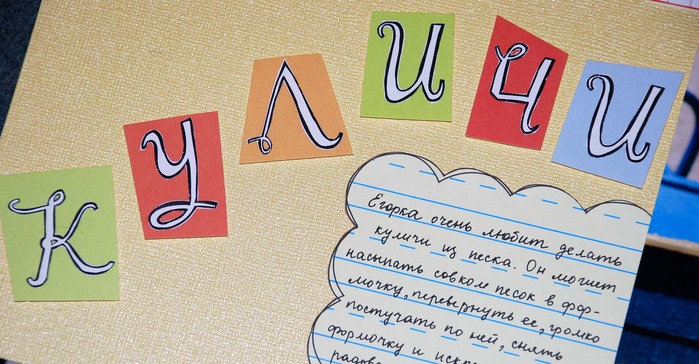 КУЛИЧИ
Егорка очень любит делать
куличи из песка. Он может
насыпать совком песок в фор-
мочку, перевернуть ее, громко
постучать по ней, снять
формочку и